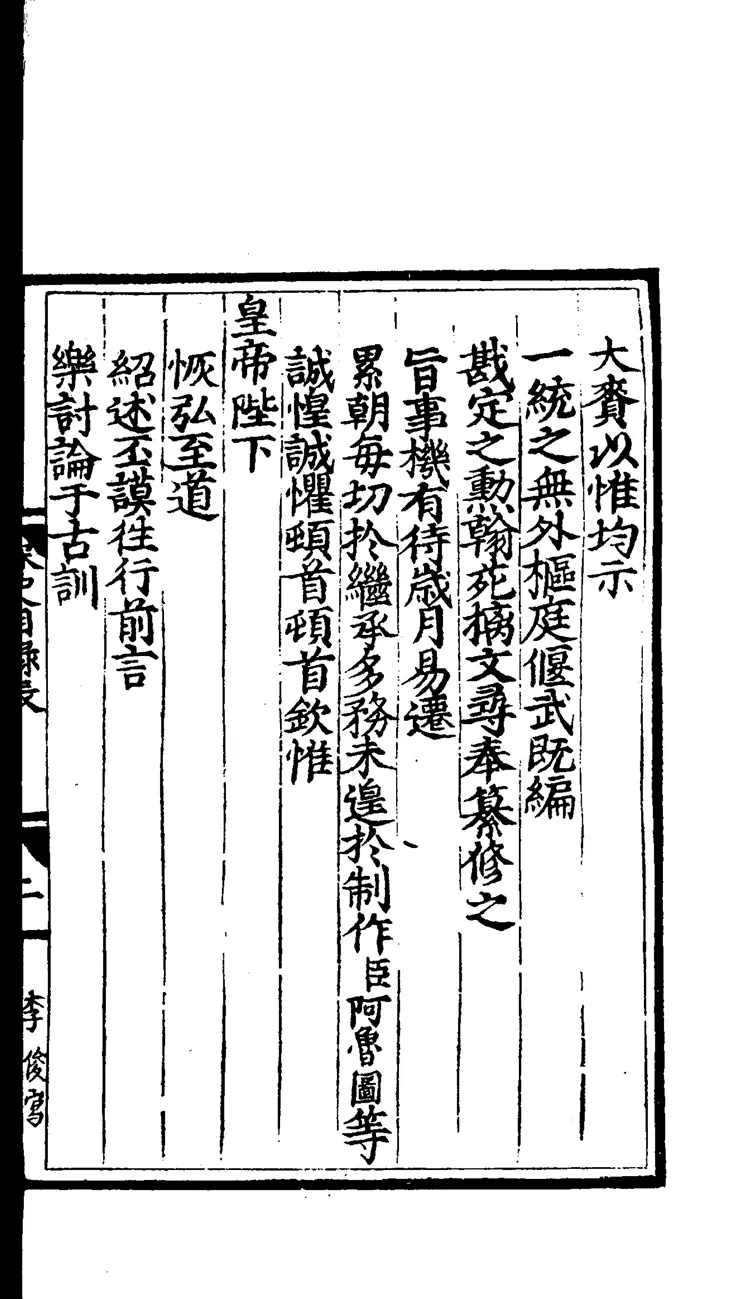 大賚以惟均示
一統之無外樞庭偃武既編
戡定之勳翰苑摛文尋奉纂修之
旨事機有待歲月易遷
累朝每切於繼承多務未遑於制作臣阿魯圖等
誠惶誠懼頓首頓首欽惟
皇帝陛下
恢弘至道
紹述丕謨往行前言
樂討論于古訓
宋史目録表
二
李俊寫